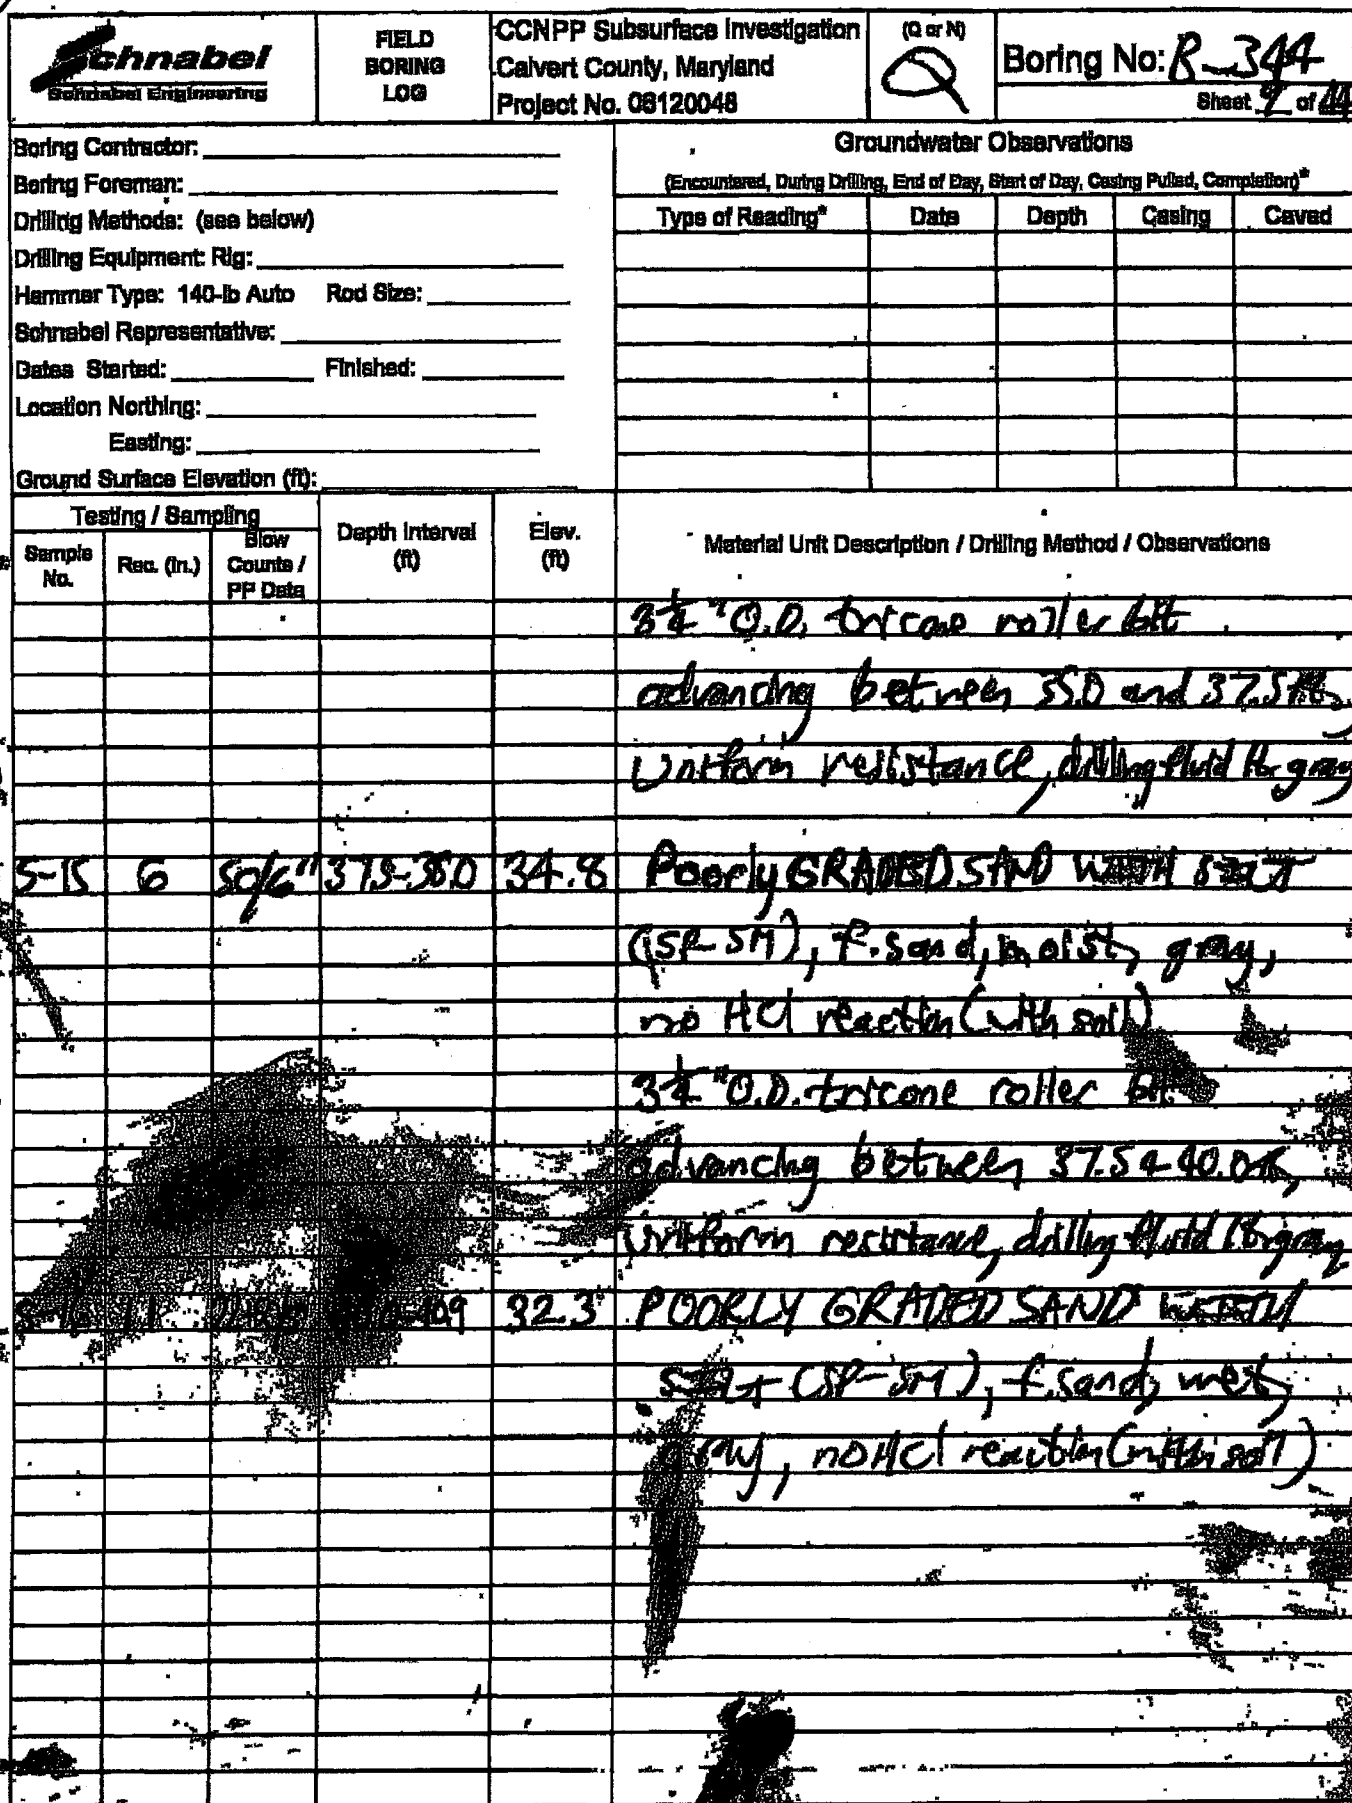 Schnabel
Schnabel Engineering
FIELD
BORING
LOG
CCNPP Subsurface Investigation
Calvert County, Maryland
Project No. 06120048
(Q or N)
Q
Boring No: B-344
Sheet of
Boring Contractor:
Boring Foreman:
Drilling Methods: (see below)
Drilling Equipment: Rig:
Hammer Type: 140-lb Auto Rod Size:
Schnabel Representative:
Dates Started: Finished:
Location Northing:
Easting:
Ground Surface Elevation (ft):
Groundwater Observations
(Encountered, During Drilling, End of Day, Start of Day, Casing Pulled, Completion)*
Type of Reading* Date Depth Casing Caved
Testing / Sampling
Sample No. Rec. (in.) Blow Counts / PP Data Depth Interval (ft) Elev. (ft) Material Unit Description / Drilling Method / Observations
3 1/4" O.D. tricone roller bit
advancing between 35.0 and 37.5 ft,
Uniform resistance, drilling fluid gray
S-15 6 50/6" 37.5-38.0 34.8 Poorly GRADED SAND WITH SILT
(SP-SM), f. sand, moist, gray,
no HCl reaction (with soil)
3 1/4" O.D. tricone roller bit
advancing between 37.5 & 40.0 ft,
uniform resistance, drilling fluid gray
S-16 11 32.3 POORLY GRADED SAND WITH
SILT (SP-SM), f. sand, wet,
gray, no HCl reaction (with soil)